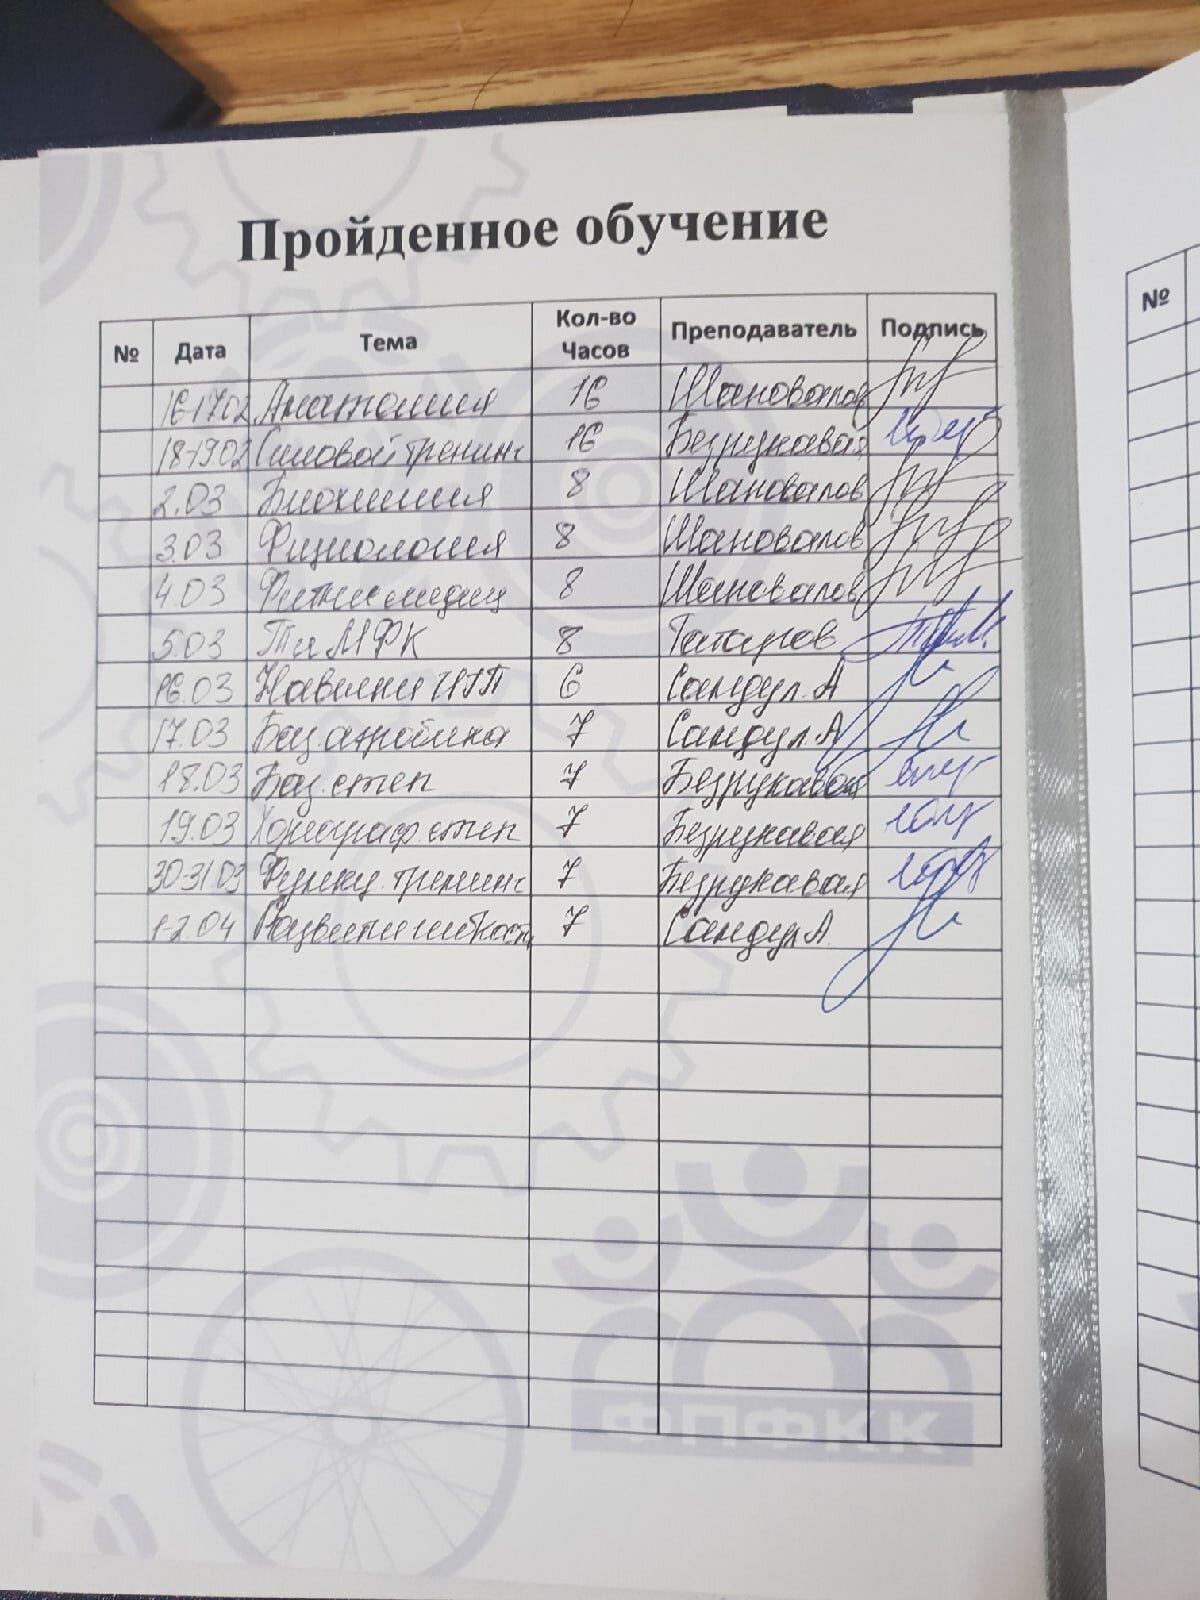 Пройденное обучение
№ Дата Тема Кол-во Часов Преподаватель Подпись
16-17.02 Анатомия 16 Шаповалов
18-19.02 Силовой тренинг 16 Безрукавая
2.03 Биохимия 8 Шаповалов
3.03 Физиология 8 Шаповалов
4.03 Фитнес медиц 8 Шаповалов
5.03 Т и МФК 8
16.03 6 Сандул. А
17.03 Баз. аэробика 7 Сандул. А
18.03 Баз. степ 7 Безрукавая
19.03 Хореограф. степ 7 Безрукавая
30-31.03 Функц. тренинг 7 Безрукавая
1-2.04 Развитие гибкости 7 Сандул А.
ФПФКК
№